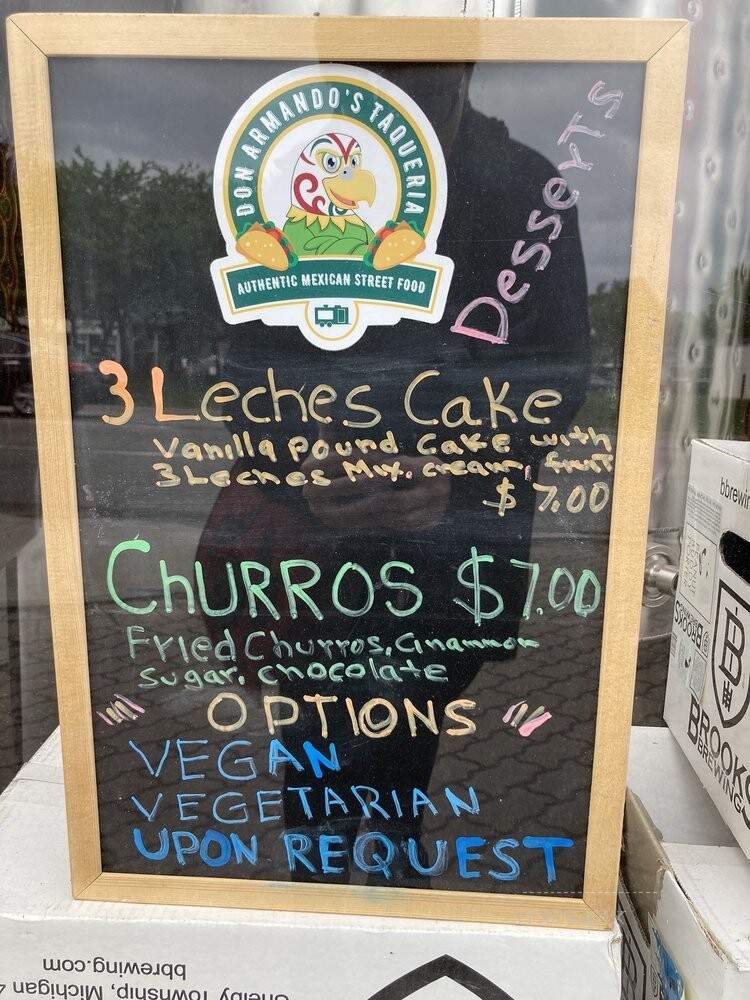 DON ARMANDO'S TAQUERIA
AUTHENTIC MEXICAN STREET FOOD
Desserts
3 Leches Cake
Vanilla Pound Cake with
3 Leches Mix, cream, fruit
$ 7.00
CHURROS $7.00
Fried Churros, Cinammon
sugar, chocolate
OPTIONS
VEGAN
VEGETARIAN
UPON REQUEST
bbrewin
BROOKS
B
BROOK
BREWING
bbrewing.com
Shelby Township, Michigan 4